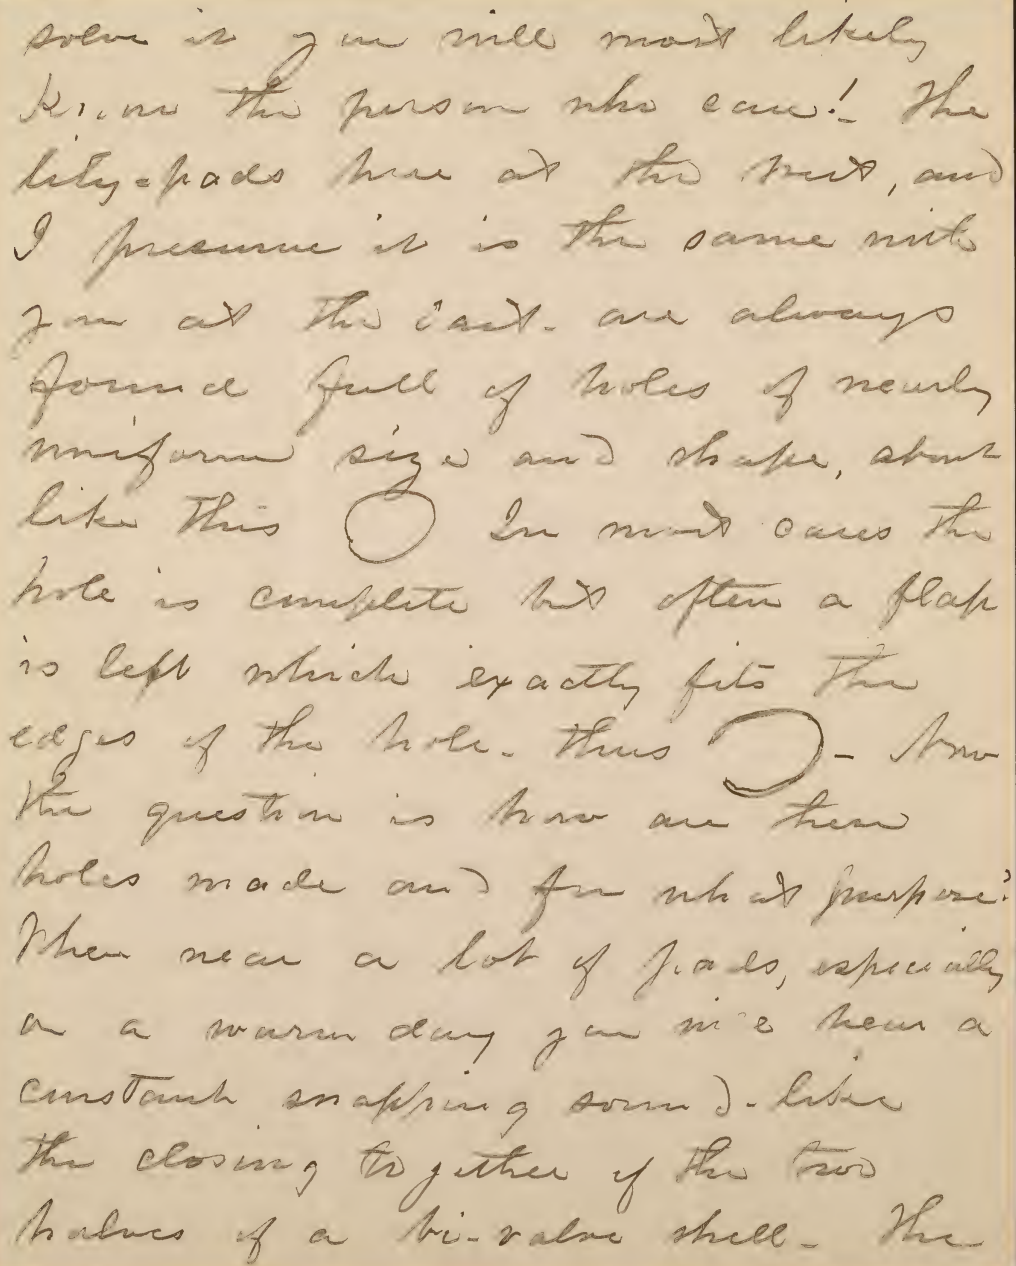 solve it you will most likely
Know the person who can! The
lily-pads here at the West, and
I presume it is the same with
you at the East- are always
found full of holes of nearly
uniform size and shape, about
like this In most cases the
hole is complete but often a flap
is left which exactly fits the
edges of the hole- thus - Now
the question is how are these
holes made and for what purpose?
When near a lot of pads, especially
on a warm day you will hear a
constant snapping sound- like
the closing together of the two
halves of a bi-valve shell- The